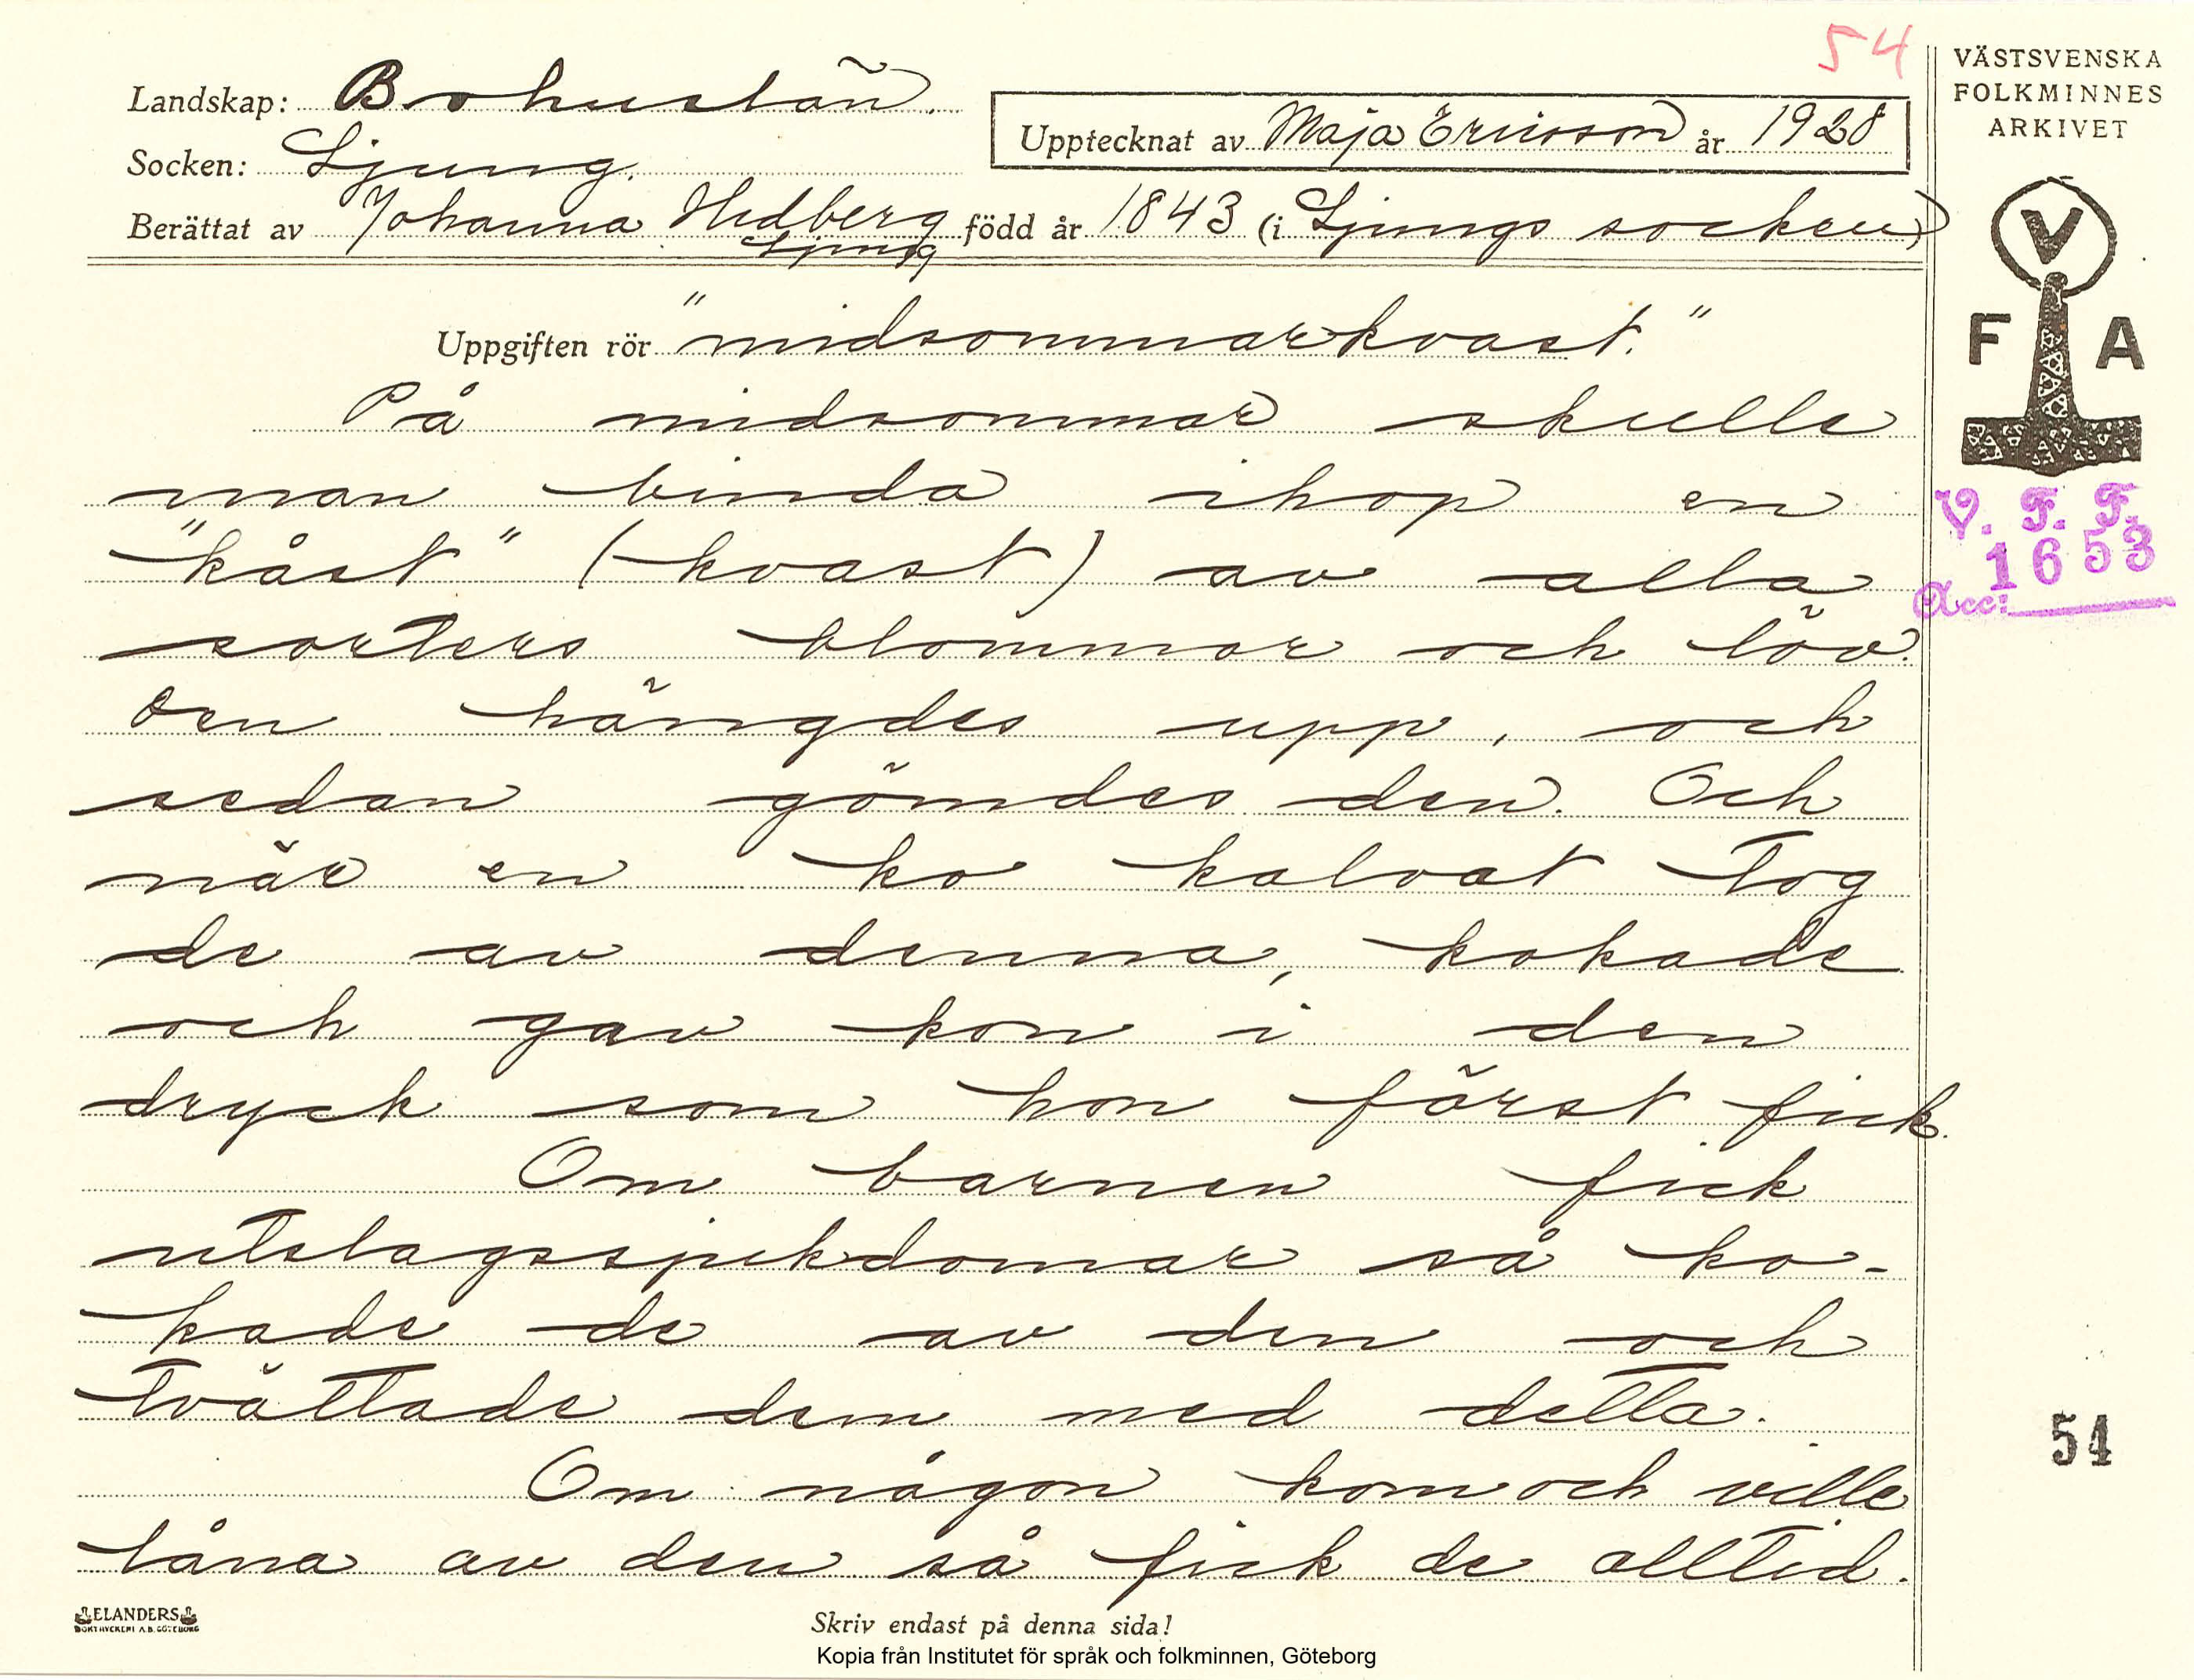 54
VÄSTSVENSKA
FOLKMINNES
ARKIVET
Landskap: Bohuslän.
Upptecknat av Maja Ericsson år 1928
Socken: Ljung.
Berättat av Johanna Hedberg född år 1843 (i Ljungs socken)
Ljung
V
F A
V. F. F.
1653
Acc:
Uppgiften rör "midsommarkvast."
På midsommar skulle
man binda ihop en
"kåst" (kvast) av alla
sorters blommor och löv.
Den hängdes upp, och
sedan gömdes den. Och
när en ko kalvat tog
de av denna, kokade
och gav kon i den
dryck som hon först fick.
Om barnen fick
utslagssjukdomar så ko-
kade de av den och
tvättade dem med detta.
Om någon kom och ville
låna av den så fick de alltid.
54
ELANDERS
BOKTRYCKERI A.B. GÖTEBORG
Skriv endast på denna sida!
Kopia från Institutet för språk och folkminnen, Göteborg